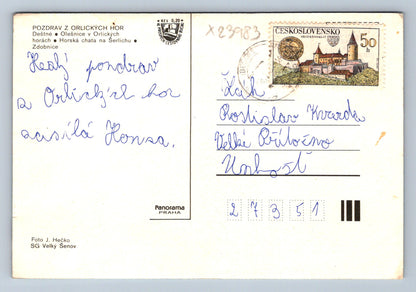 POZDRAV Z ORLICKÝCH HOR
Deštné • Olešnice v Orlických
horách • Horská chata na Šerlichu •
Zdobnice
Kčs 0,20
x23983
ČESKOSLOVENSKO
50 h
Hezký pozdrav
z Orlických hor
zasílá Honza.
Rostislav
Velké Přítočno
Unhošť
Panorama
PRAHA
27351
Foto J. Hečko
SG Velký Šenov